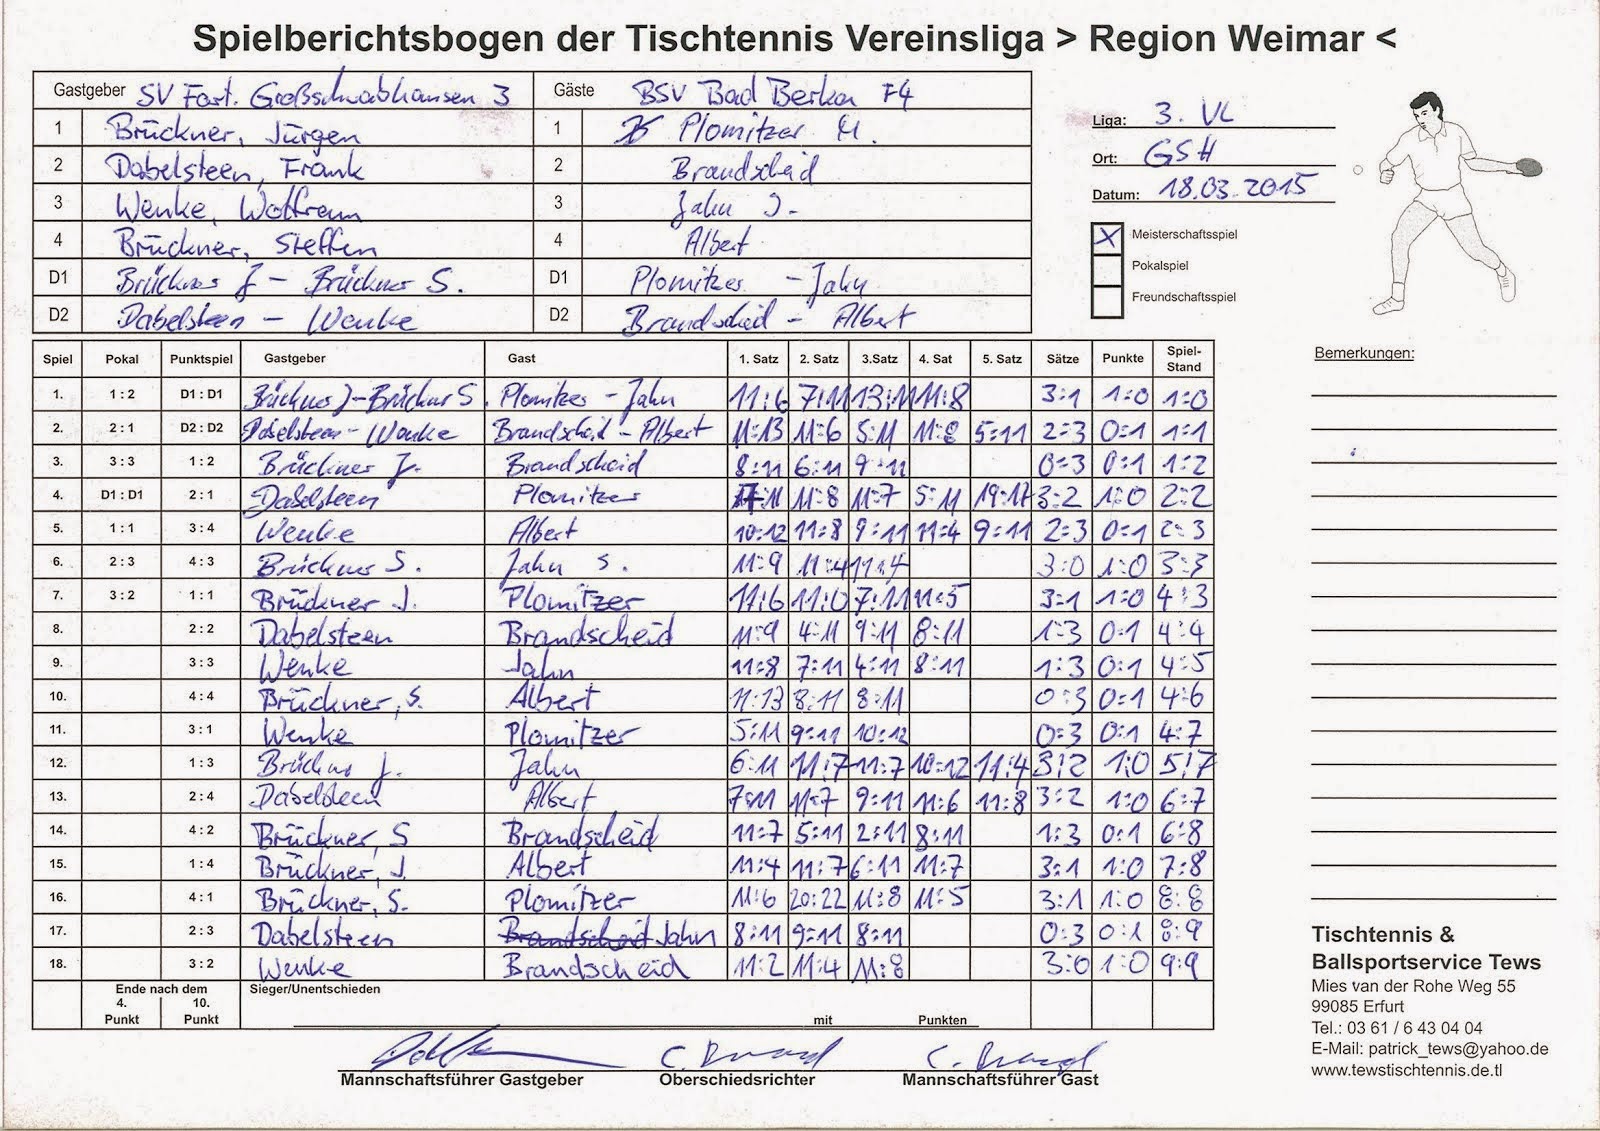 Spielberichtsbogen der Tischtennis Vereinsliga > Region Weimar <
Gastgeber SV Fort. Großschwabhausen 3 Gäste BSV Bad Berka F4
1 Brückner, Jürgen 1 Plomitzer M.
2 Dabelsteen, Frank 2 Brandscheid
3 Wenke, Wolfram 3 Jahn S.
4 Brückner, Steffen 4 Albert
D1 Brückner J – Brückner S. D1 Plomitzer – Jahn
D2 Dabelsteen – Wenke D2 Brandscheid – Albert
Liga: 3. VL
Ort: GSH
Datum: 18.03.2015
X Meisterschaftsspiel
Pokalspiel
Freundschaftsspiel
Spiel Pokal Punktspiel Gastgeber Gast 1. Satz 2. Satz 3.Satz 4. Sat 5. Satz Sätze Punkte Spiel-Stand
1. 1 : 2 D1 : D1 Brückner J – Brückner S. Plomitzer – Jahn 11:6 7:11 13:11 11:8 3:1 1:0 1:0
2. 2 : 1 D2 : D2 Dabelsteen – Wenke Brandscheid – Albert 11:13 11:6 5:11 11:8 5:11 2:3 0:1 1:1
3. 3 : 3 1 : 2 Brückner J. Brandscheid 8:11 6:11 9:11 0:3 0:1 1:2
4. D1 : D1 2 : 1 Dabelsteen Plomitzer 7:11 11:8 11:7 5:11 19:17 3:2 1:0 2:2
5. 1 : 1 3 : 4 Wenke Albert 10:12 11:8 9:11 11:4 9:11 2:3 0:1 2:3
6. 2 : 3 4 : 3 Brückner S. Jahn S. 11:9 11:4 11:4 3:0 1:0 3:3
7. 3 : 2 1 : 1 Brückner J. Plomitzer 11:6 11:0 7:11 11:5 3:1 1:0 4:3
8. 2 : 2 Dabelsteen Brandscheid 11:9 4:11 9:11 8:11 1:3 0:1 4:4
9. 3 : 3 Wenke Jahn 11:8 7:11 4:11 8:11 1:3 0:1 4:5
10. 4 : 4 Brückner, S. Albert 11:13 8:11 8:11 0:3 0:1 4:6
11. 3 : 1 Wenke Plomitzer 5:11 9:11 10:12 0:3 0:1 4:7
12. 1 : 3 Brückner J. Jahn 6:11 11:7 11:7 10:12 11:4 3:2 1:0 5:7
13. 2 : 4 Dabelsteen Albert 7:11 11:7 9:11 11:6 11:8 3:2 1:0 6:7
14. 4 : 2 Brückner, S Brandscheid 11:7 5:11 2:11 8:11 1:3 0:1 6:8
15. 1 : 4 Brückner, J. Albert 11:4 11:7 6:11 11:7 3:1 1:0 7:8
16. 4 : 1 Brückner, S. Plomitzer 11:6 20:22 11:8 11:5 3:1 1:0 8:8
17. 2 : 3 Dabelsteen Brandscheid Jahn 8:11 9:11 8:11 0:3 0:1 8:9
18. 3 : 2 Wenke Brandscheid 11:2 11:4 11:8 3:0 1:0 9:9
Ende nach dem Sieger/Unentschieden
4. Punkt 10. Punkt mit Punkten
Mannschaftsführer Gastgeber Oberschiedsrichter Mannschaftsführer Gast
Bemerkungen:
Tischtennis &
Ballsportservice Tews
Mies van der Rohe Weg 55
99085 Erfurt
Tel.: 03 61 / 6 43 04 04
E-Mail: patrick_tews@yahoo.de
www.tewstischtennis.de.tl